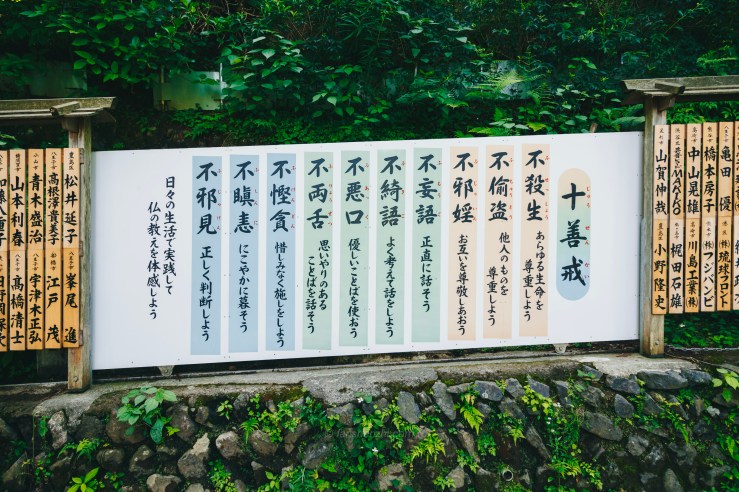 十善戒
不殺生
あらゆる生命を
尊重しよう
不偸盗
他人のものを
尊重しよう
不邪婬
お互いを尊敬しあおう
不妄語
正直に話そう
不綺語
よく考えて話をしよう
不悪口
優しいことばを使おう
不両舌
思いやりのある
ことばを話そう
不慳貪
惜しみなく施しをしよう
不瞋恚
にこやかに暮そう
不邪見
正しく判断しよう
日々の生活で実践して
仏の教えを体感しよう
亀田優
橋本房子
(株)琉球フロント
(株)フジパンビ
中山晃雄
川島工業(株)
MAKO
梶田石雄
山賀伸哉
小野隆史
松井延子
峯尾進
高根澤貴美子
江戸茂
青木盛治
宇津木正弘
山本利春
髙橋清士